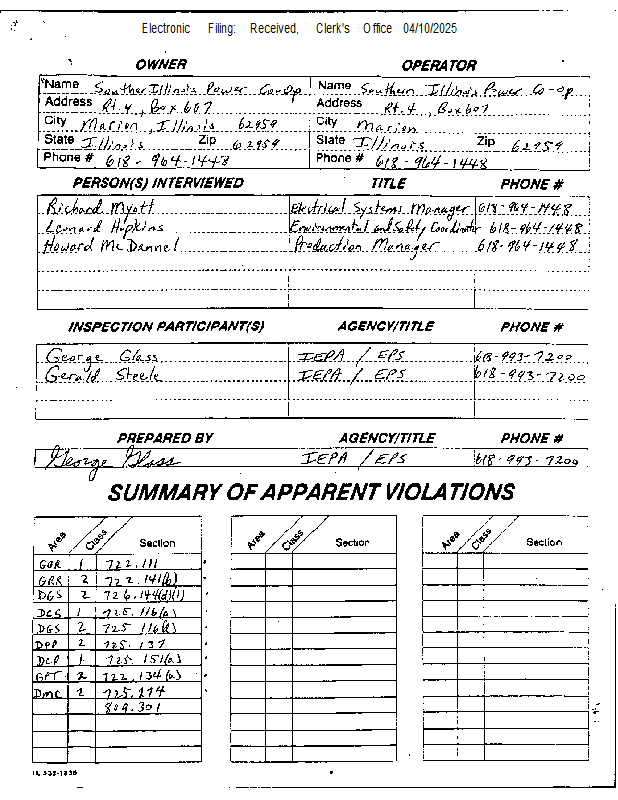 Electronic Filing: Received, Clerk's Office 04/10/2025
OWNER OPERATOR
Name Souther Illinois Power Co-Op Name Southern Illinois Power Co-op
Address Rt. 4, Box 607 Address Rt. 4, Box 607
City Marion, Illinois 62959 City Marion
State Illinois Zip 62959 State Illinois Zip 62959
Phone # 618-964-1448 Phone # 618-964-1448
PERSON(S) INTERVIEWED TITLE PHONE #
Richard Myott Electrical Systems Manager 618-964-1448
Leonard Hopkins Environmental and Safety Coordinator 618-964-1448
Howard McDannel Production Manager 618-964-1448
INSPECTION PARTICIPANT(S) AGENCY/TITLE PHONE #
George Glass IEPA / EPS 618-993-7200
Gerald Steele IEPA / EPS 618-993-7200
PREPARED BY AGENCY/TITLE PHONE #
George Glass IEPA / EPS 618-993-7200
SUMMARY OF APPARENT VIOLATIONS
Area Class Section Area Class Section Area Class Section
GGR 1 722.111
GRR 2 722.141(b)
DGS 2 726.144(d)(1)
DCS 1 725.116(a)
DGS 2 725.116(d)
DPP 2 725.137
DCP 1 725.151(a)
GPT 2 722.134(a)
DMC 2 725.274
809.301
IL 532-1338